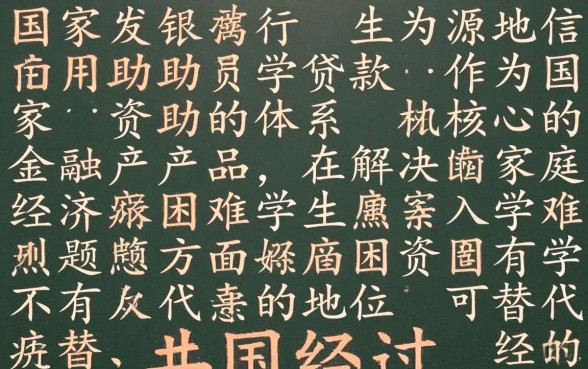 国家发银行 生为源地信
用助助员学贷款··作为国
家··资助的体系 核心的
金融产产品，在解决家庭
经济困难学生入学难
题方面困资有学
不有代的地位 可替代
替、国经过 经的